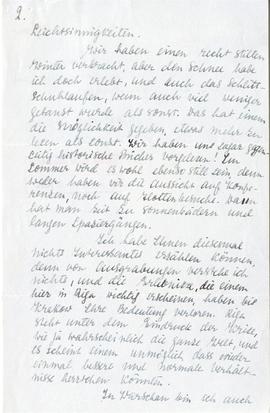 2.
Leichtsinnigkeiten.
Wir haben einen recht stillen
Winter verbracht, aber den Schnee habe
ich doch erlebt, und auch das Schlitt-
schuhlaufen, wenn auch viel weniger
getanzt wurde als sonst. Das hat einem
die Möglichkeit gegeben, etwas mehr zu
lesen als sonst. Wir haben uns sogar
historische Bücher vorgelesen! Im
Sommer wird es wohl ebenso still sein, denn
weder haben wir die Aussicht auf Konfe-
renzen, noch auf Flottenbesuche. Dann
hat man Zeit zu Sonnenbädern und
langen Spaziergängen.
Ich habe Ihnen diesmal
nichts Interessantes erzählen können,
denn von Ausgrabungen verstehe ich
nichts, und die die einem
hier in Riga wichtig erscheinen, haben bis
Krakow Ihre Bedeutung verloren. Riga
steht unter dem Eindruck der Krise,
wie ja wahrscheinlich die ganze Welt, und
es scheint einem unmöglich dass wieder
einmal bessere und normale Verhält-
nisse herrschen könnten.
In Warschau bin ich auch